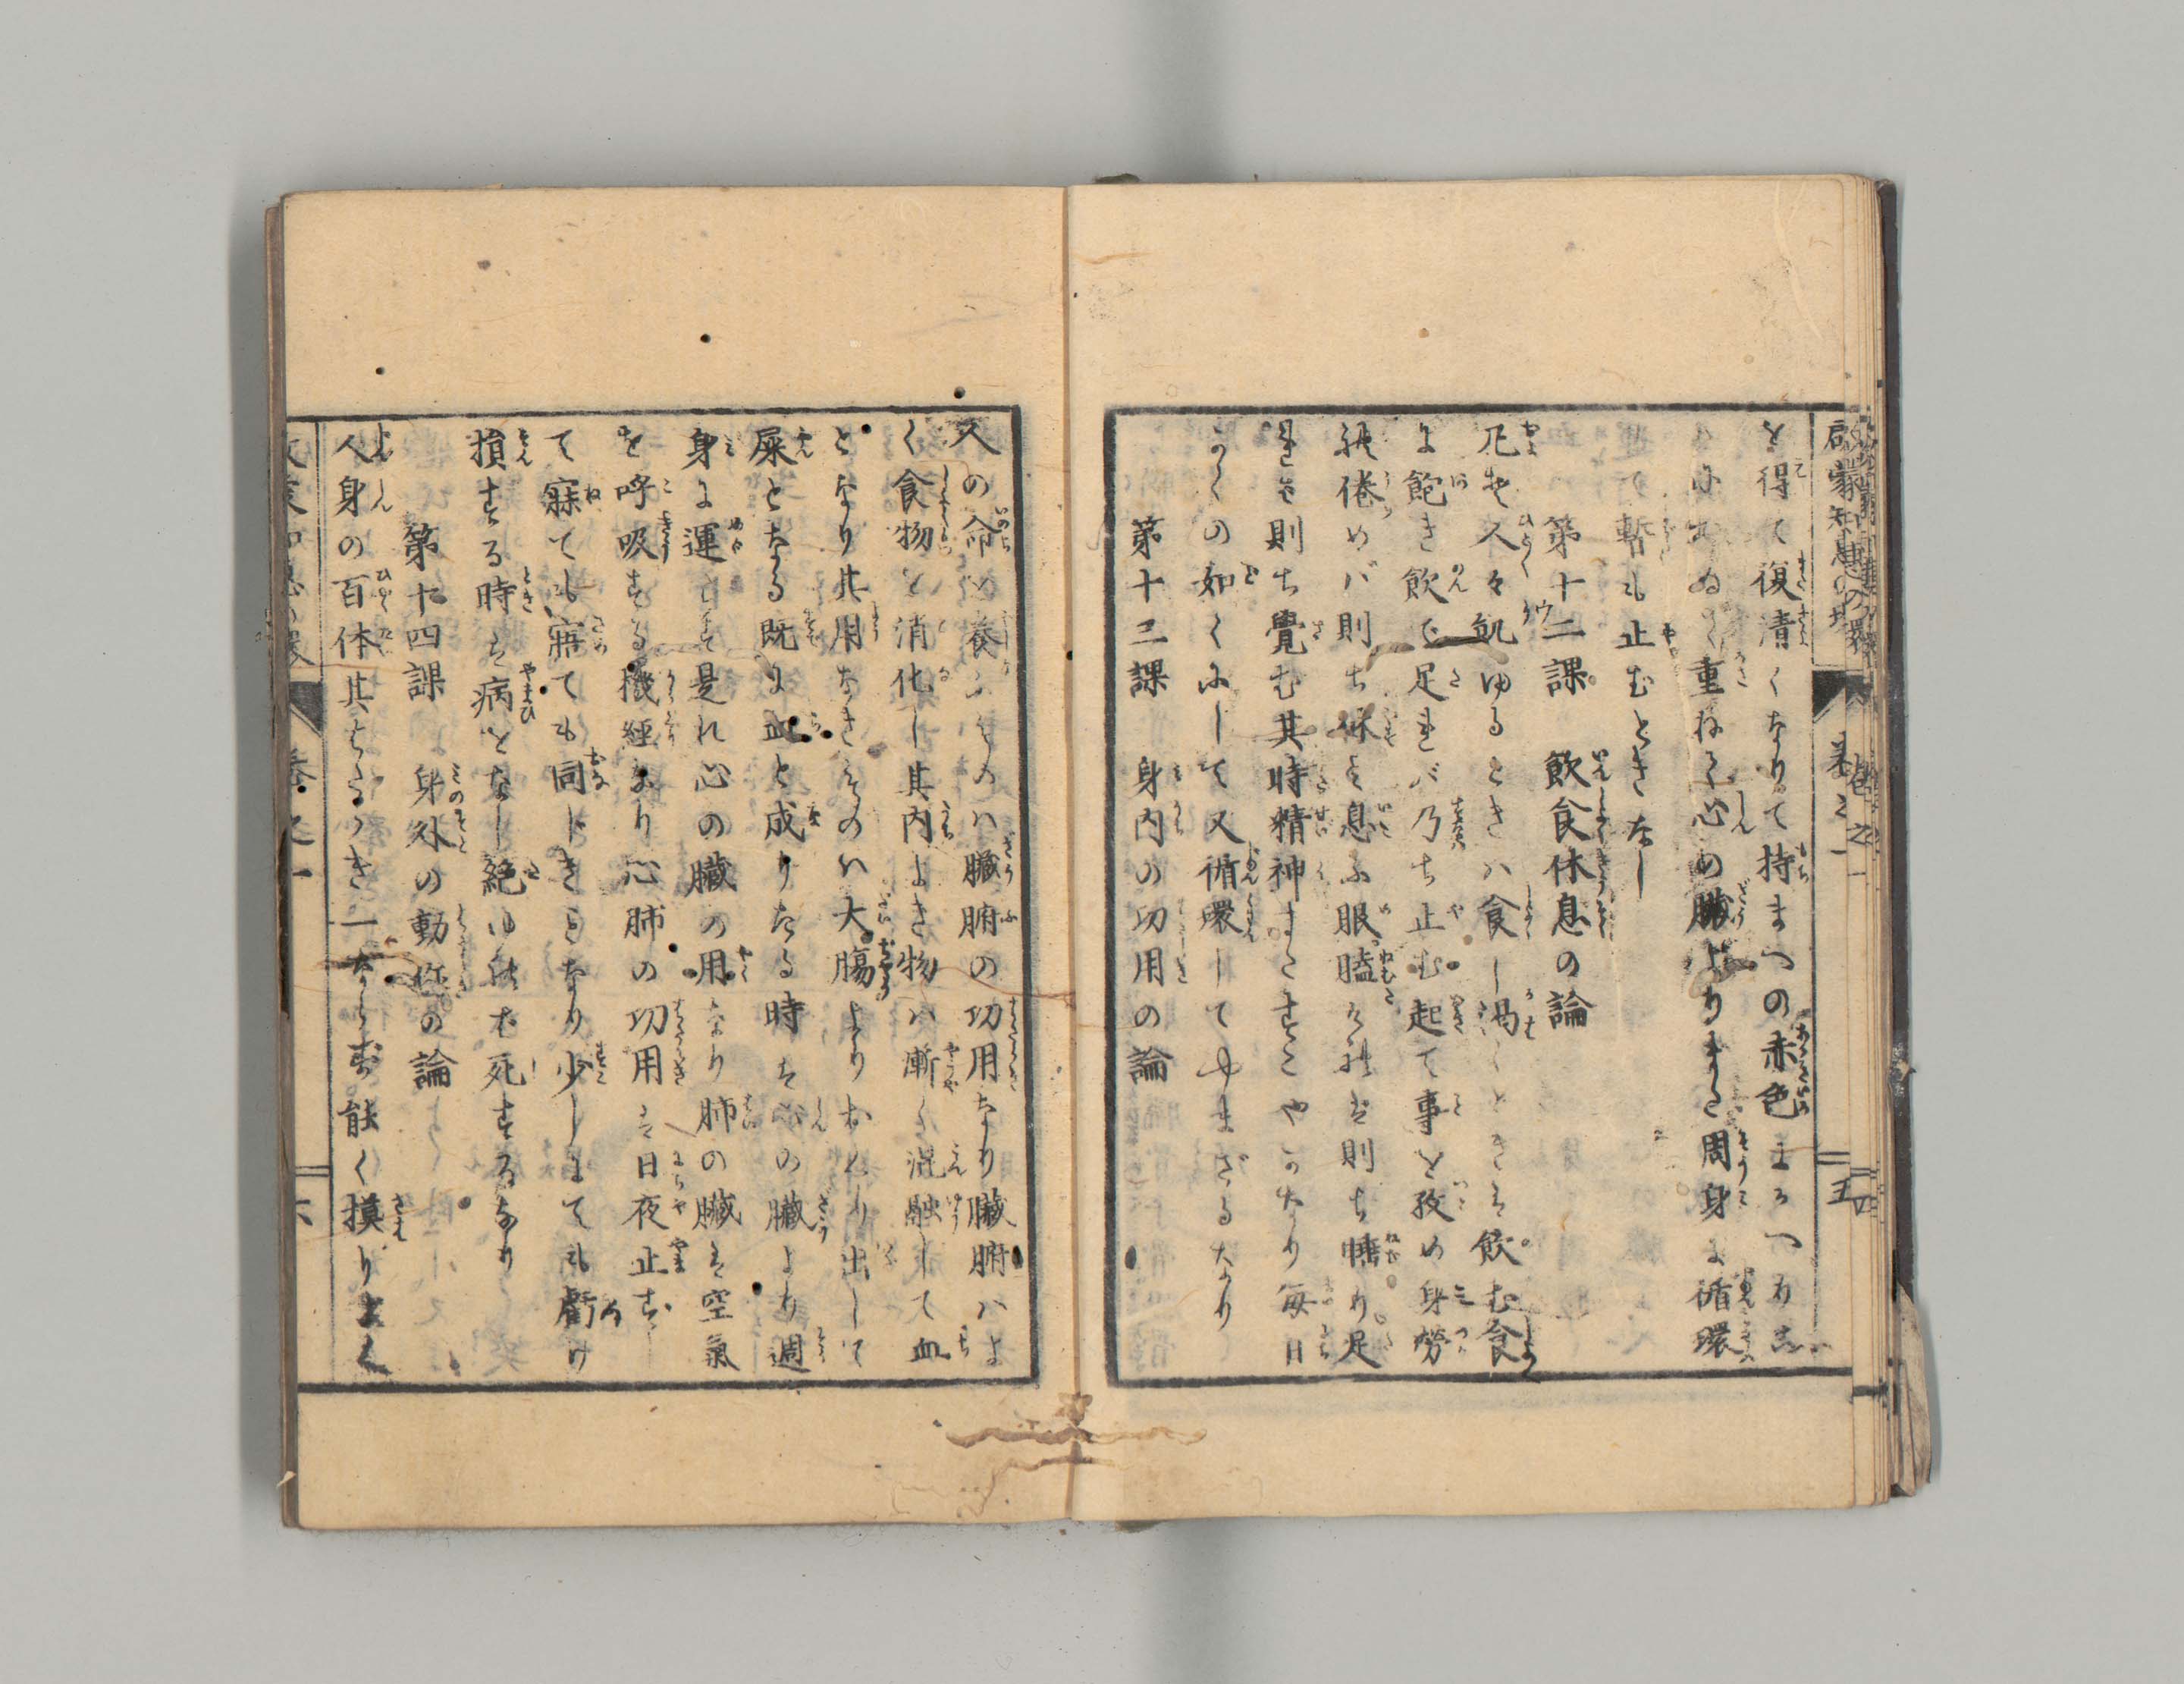 啓蒙知恵の環 巻之一 五
を得て復清くなりて持まへの赤色にかへれし
めぬ重ねて心の臓よりまた周身に循環
て暫も止むときなし
第十二課 飲食休息の論
凡そ人々飢ゆるときハ食し渇くときは飲む食
に飽き飲で足れバ乃ち止む起て事を務め身労
れ倦めバ則ち休み息ふ眼瞌れば則ち睡り足
れば則ち覺む其時精神またすこやかなり毎日
かくの如くにして又循環してやまざるなり
第十三課 身内の功用の論
人の命を養ふものハ臓腑の功用なり臓腑ハよ
く食物を消化し其内よき物ハ漸く混融して血
となり其用なきものハ大腸よりおくり出して
屎となる既に血と成りたる時は心の臓より週
身に運らす是れ心の臓の用なり肺の臓は空氣
を呼吸する機經なり心肺の功用は日夜止ず
て寐ても寤ても同じきことなり少しにても虧け
損する時は病となし絶ゆれば死するなり
第十四課 身外の動作の論
人身の百体其はたらき一ならず能く摸りよく
巻之一 六